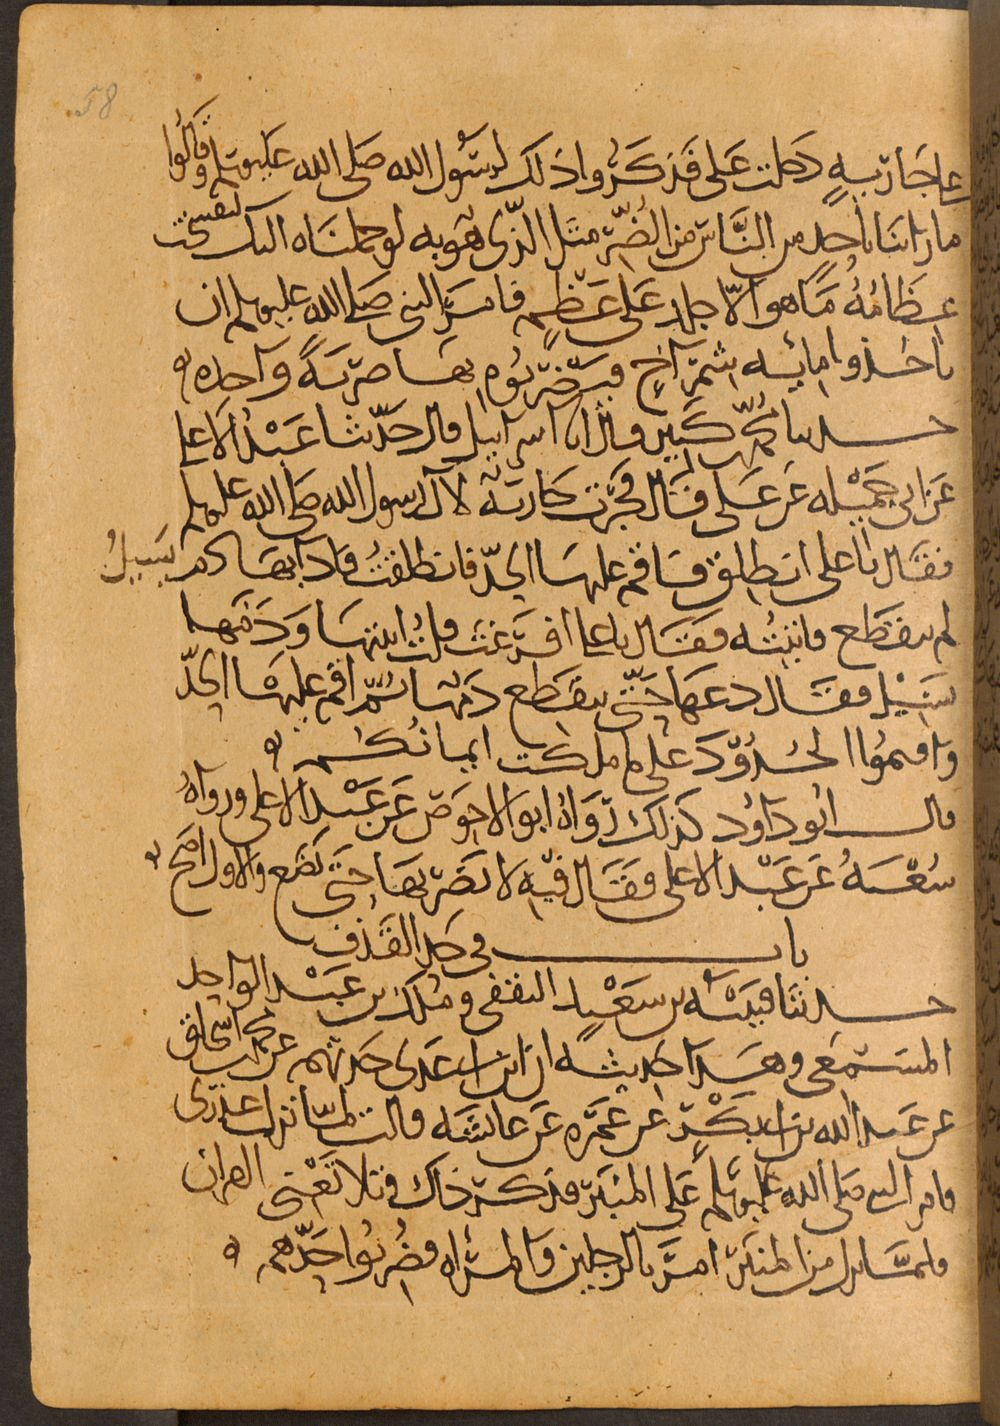 58
على جارية دخلت على فذكروا ذلك لرسول الله صلى الله عليه وسلم وقالوا
ما راينا باحد من الناس من الضر مثل الذي هو به لو حملناه اليك لتفسخت
عظامه ما هو الا جلد على عظم فامر النبي صلى الله عليه وسلم ان
ياخذوا مايه شمراخ فيضربوه بها ضربة واحدة
حدثنا محمد بن كثير قال انا اسرائيل قال حدثنا عبد الاعلى
عن ابي جميله عن علي فقال فجرت جارية لال رسول الله صلى الله عليه وسلم
فقال يا علي انطلق فاقم عليها الحد فانطلقت فاذا بها دم يسيل
لم ينقطع فاتيته فقال يا علي افرغت قلت اتيتها ودمها
يسيل فقال دعها حتى ينقطع دمها ثم اقم عليها الحد
واقيموا الحدود على ما ملكت ايمانكم
قال ابو داود كذلك رواه ابو الاحوص عن عبد الاعلى ورواه
شعبة عن عبد الاعلى فقال فيه لا تضربها حتى تضع والاول اصح
باب في حد القذف
حدثنا قتيبة بن سعيد الثقفي وملك بن عبد الواحد
المسمعي وهذا حديثه ان ابن ابي عدي حدثهم عن محمد بن اسحاق
عن عبد الله بن ابي بكر عن عمرة عن عائشة قالت لما نزل عذري
قام النبي صلى الله عليه وسلم على المنبر فذكر ذاك وتلا تعني القران
فلما نزل من المنبر امر بالرجلين والمراة فضربوا حدهم